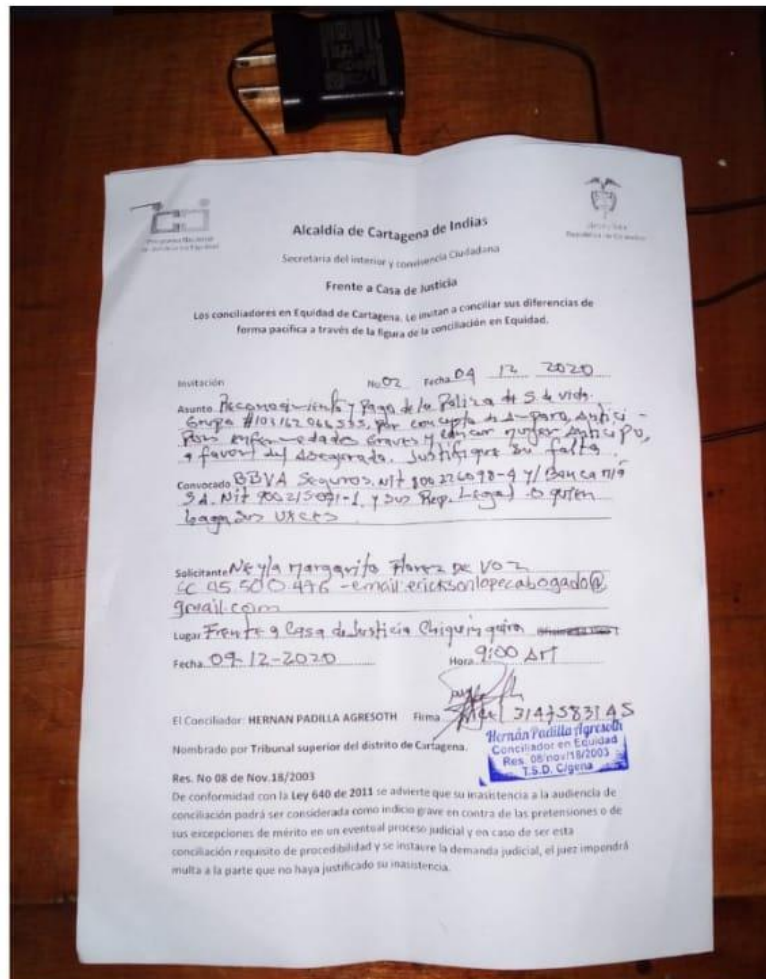 Alcaldía de Cartagena de Indias
Secretaria del interior y convivencia Ciudadana
Frente a Casa de Justicia
Los conciliadores en Equidad de Cartagena. Le invitan a conciliar sus diferencias de
forma pacífica a través de la figura de la conciliación en Equidad.
Invitación No. 02 Fecha 04 12 2020
Asunto Reconocimiento y Pago de la Poliza de S. de vida
Grupo por concepto de Amparo, Antici-
Por enfermedades Graves y cancer mujer Anticipo,
a favor del Asegurado. Justifique su falta.
Convocado BBVA Seguros. Nit 800226098-4 y/
S.A. Nit y sus Rep. Legal o quien
haga sus veces
Solicitante Neyla Margarita Florez De Voz
CC 45.500.476 - email:ericksonlopecabogado@
gmail.com
Lugar Frente a Casa de Justicia Chiquinquira
Fecha 09-12-2020 Hora 9:00 AM
El Conciliador: HERNAN PADILLA AGRESOTH Firma 3147583145
Hernán Padilla Agresoth
Conciliador en Equidad
Res. 08/nov/18/2003
T.S.D. C/gena
Nombrado por Tribunal superior del distrito de Cartagena.
Res. No 08 de Nov.18/2003
De conformidad con la Ley 640 de 2011 se advierte que su inasistencia a la audiencia de
conciliación podrá ser considerada como indicio grave en contra de las pretensiones o de
sus excepciones de mérito en un eventual proceso judicial y en caso de ser esta
conciliación requisito de procedibilidad y se instaure la demanda judicial, el juez impondrá
multa a la parte que no haya justificado su inasistencia.